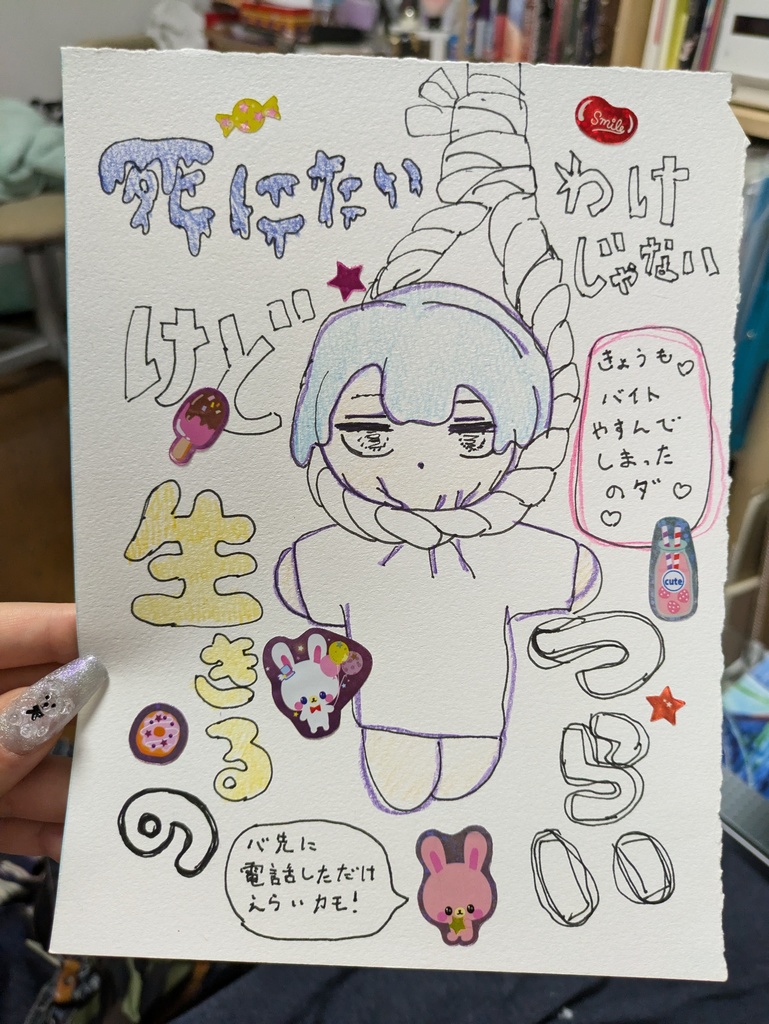 死にたい
わけ
じゃない
けど
きょうも♡
バイト
やすんで
しまった
のダ♡
♡
生
きる
の
つらい
バ先に
電話しただけ
えらいカモ!
Smile
cute